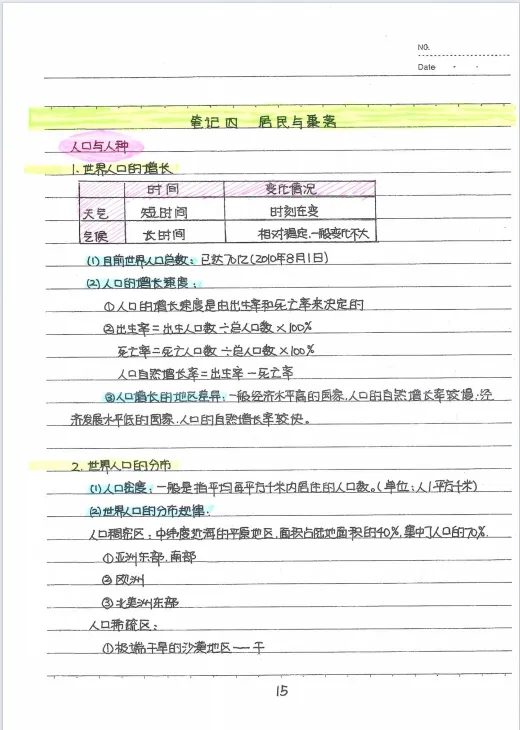 NO.
Date
笔记四 居民与聚落
人口与人种
1. 世界人口的增长
时间 变化情况
天气 短时间 时刻在变
气候 长时间 相对稳定,一般变化不大
(1)目前世界人口总数:已达70亿(2010年8月1日)
(2)人口的增长速度:
①人口的增长速度是由出生率和死亡率来决定的
②出生率=出生人口数÷总人口数×100%
死亡率=死亡人口数÷总人口数×100%
人口自然增长率=出生率-死亡率
③人口增长的地区差异:一般经济水平高的国家,人口的自然增长率较慢;经
济发展水平低的国家,人口的自然增长率较快。
2. 世界人口的分布
(1)人口密度:一般是指平均每平方千米内居住的人口数。(单位:人/平方千米)
(2)世界人口的分布规律.
人口稠密区:中纬度近海的平原地区,面积占陆地面积的40%,集中了人口的70%.
①亚洲东部,南部
②欧洲
③北美洲东部
人口稀疏区:
①极端干旱的沙漠地区——干
15